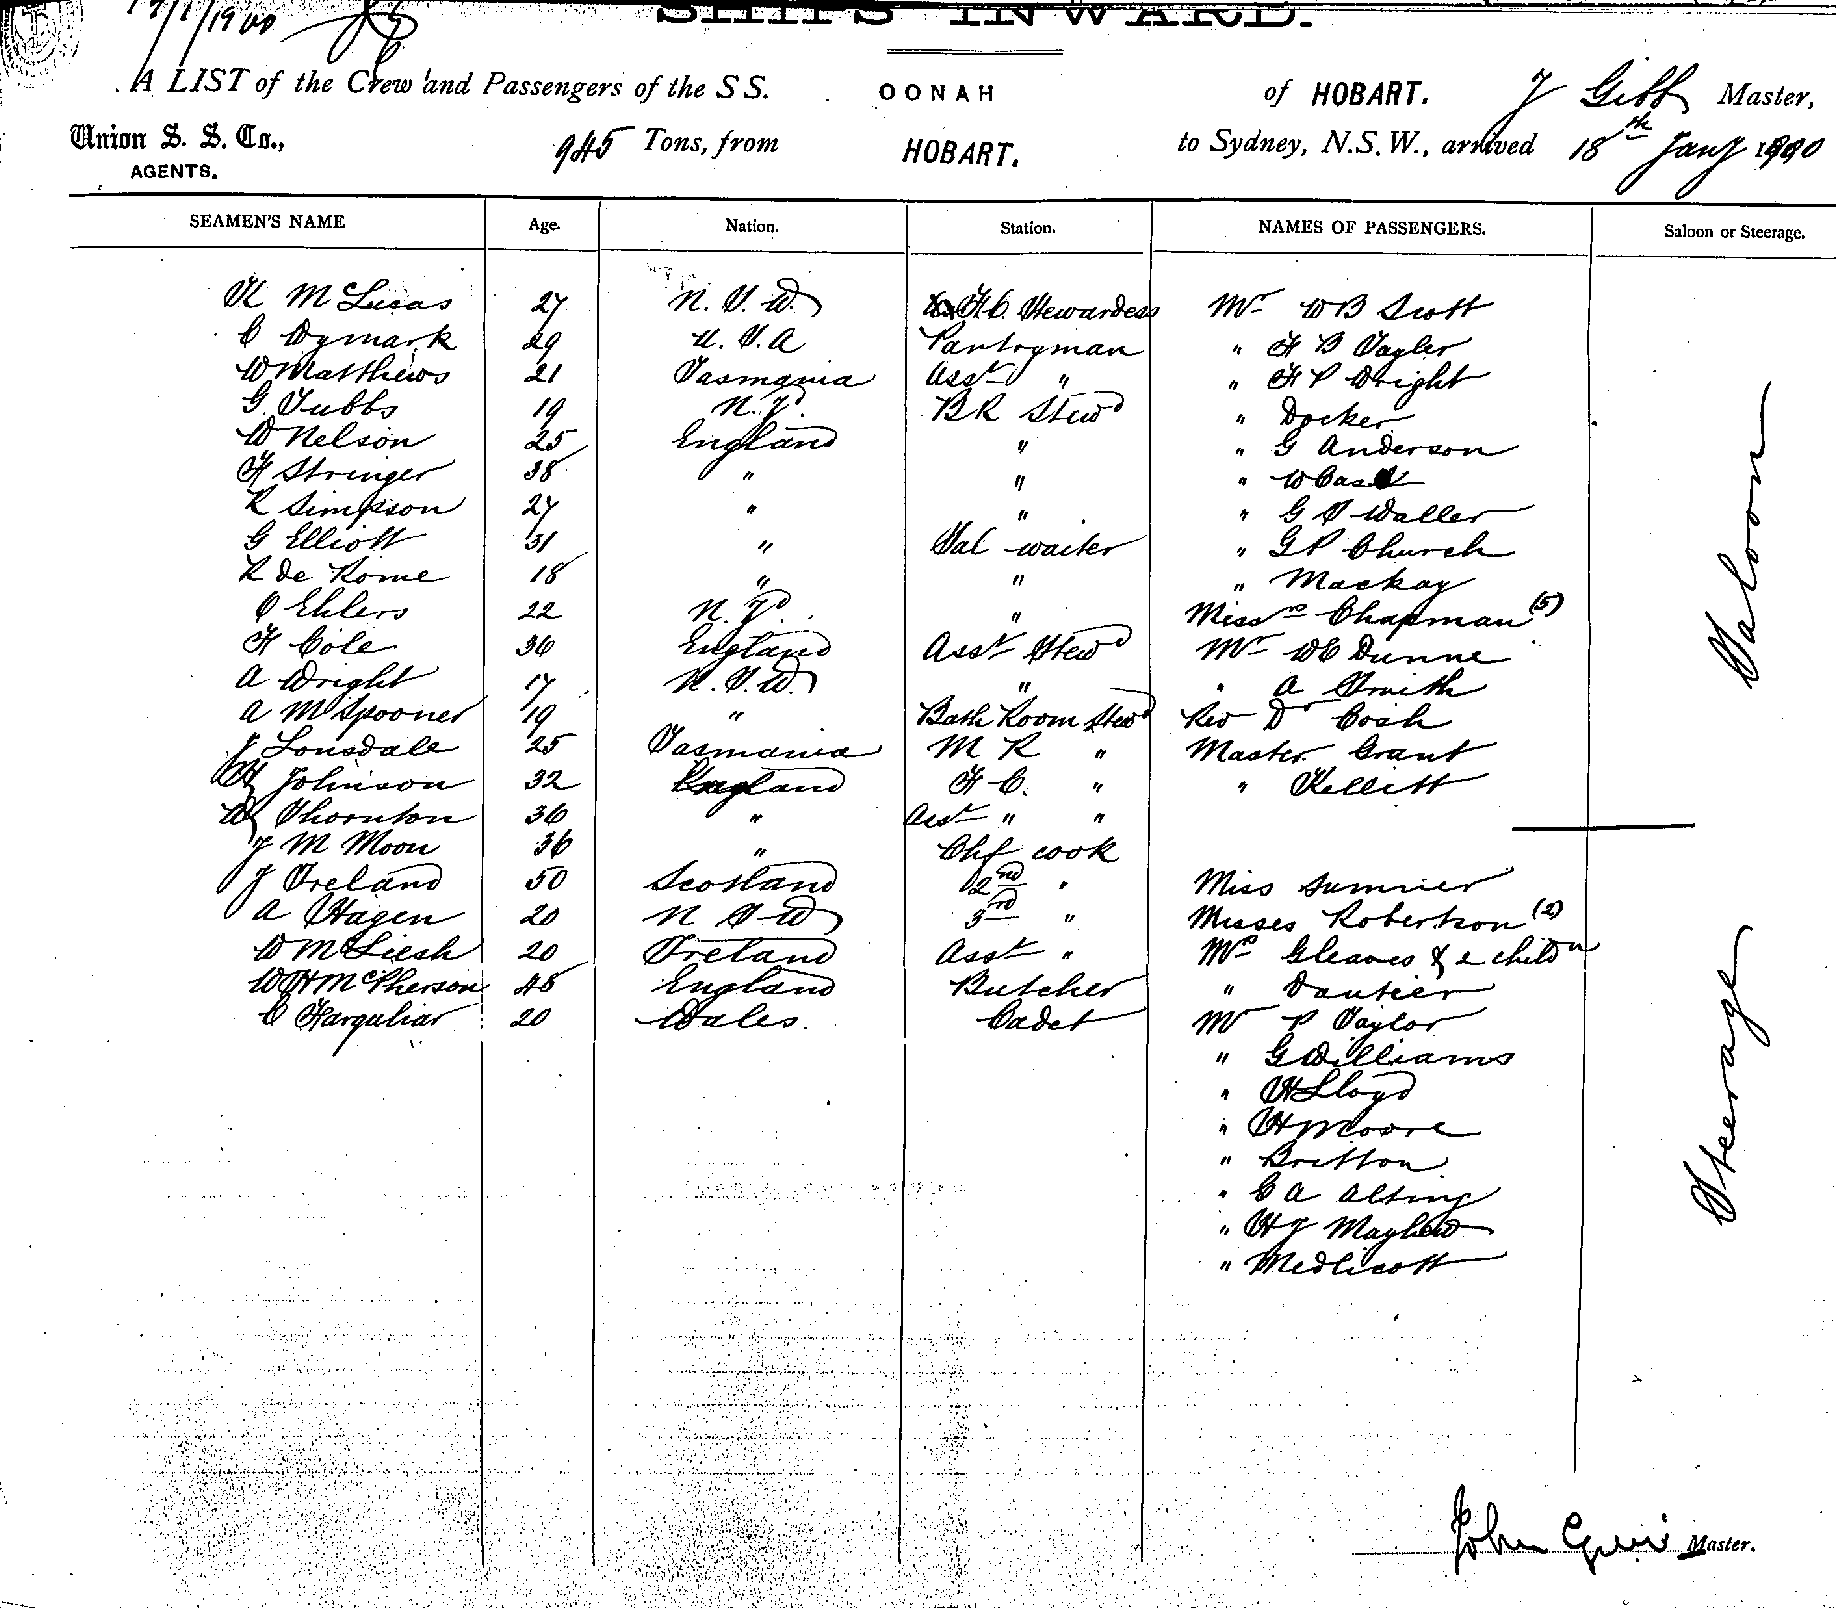 SHIPS INWARD.
A LIST of the Crew and Passengers of the SS. OONAH of HOBART. J Gibb Master,
Union S. S. Co., AGENTS. 945 Tons, from HOBART. to Sydney, N.S.W., arrived 18th Jany 1900
SEAMEN'S NAME Age. Nation. Station. NAMES OF PASSENGERS. Saloon or Steerage.
K McLucas 27 N.S.W. F.C. Stewardess Mr W B Scott
C Dymark 29 U.S.A Pantryman " F B Tayler
W Matthews 21 Tasmania Asst " " F P Wright
G. Tubbs 19 N.Zd BR Stewd " Docker
W Nelson 25 England " " G Anderson
F Stringer 38 " " " W
R Simpson 27 " " " G S Waller
G Elliott 31 " Sal waiter " G P Church
R de Rome 18 " " " Mackay
C Ehlers 22 N.Zd " Misses Chapman (5)
F Cole 36 England Asst Stewd Mr W C Dunne
A Wright 17 N.S.W. " " A Smith
A M Spooner 19 " Bath Room Stewd Rev Dr Cosh
J Lonsdale 25 Tasmania M R " Master Grant
Johnson 32 England F C. " " Kellitt
Thornton 36 " Asst " "
J M Moon 36 " Chf cook
J Ireland 50 Scotland 2nd " Miss Sumner
A Hagen 20 N S W 3rd " Misses Robertson (2)
W McLiesh 20 Ireland Asst " Mrs Gleaves & 2 childn
W H McPherson 45 England Butcher " Dautier
C Farquhar 20 Wales. Cadet Mr P Taylor
" G Williams
" H Lloyd
" H Moore
" Britton
" C A Alting
" H J Mayhew
" Medlicott
Saloon
Steerage
John Master.